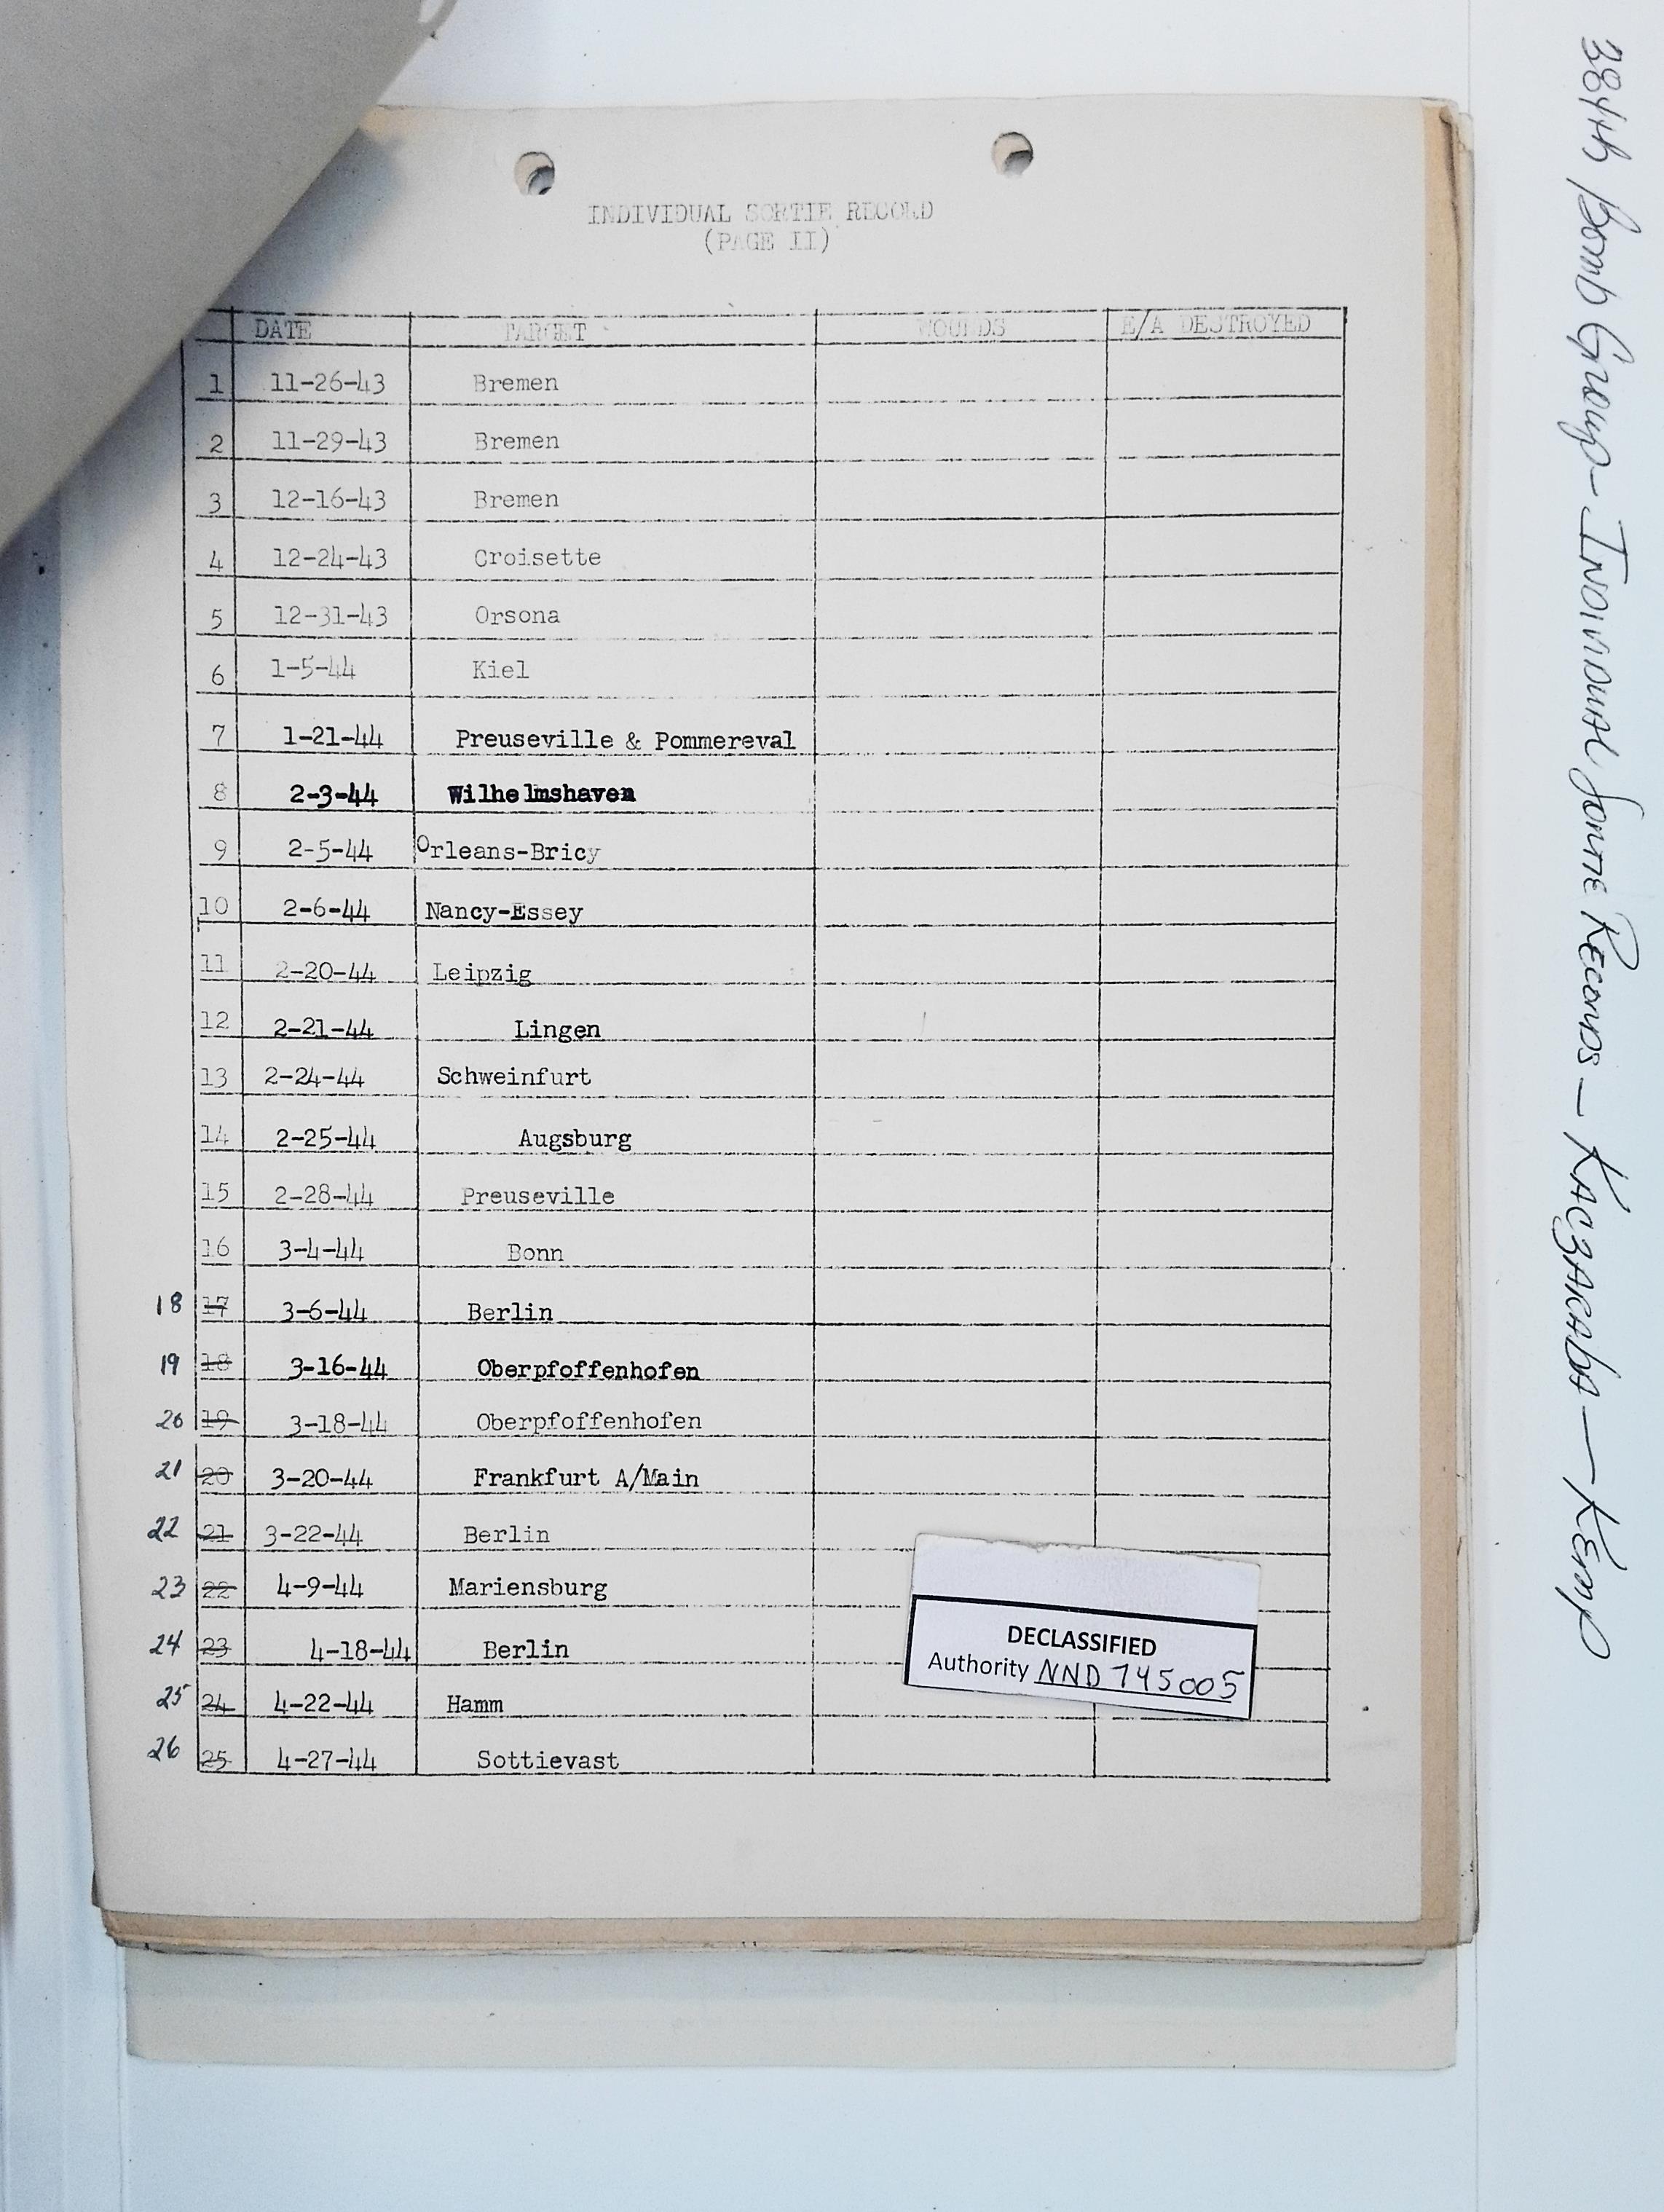 INDIVIDUAL SORTIE RECORD
(PAGE II)
DATE TARGET WOUNDS E/A DESTROYED
1 11-26-43 Bremen
2 11-29-43 Bremen
3 12-16-43 Bremen
4 12-24-43 Croisette
5 12-31-43 Orsona
6 1-5-44 Kiel
7 1-21-44 Preuseville & Pommereval
8 2-3-44 Wilhelmshaven
9 2-5-44 Orleans-Bricy
10 2-6-44 Nancy-Essey
11 2-20-44 Leipzig
12 2-21-44 Lingen
13 2-24-44 Schweinfurt
14 2-25-44 Augsburg
15 2-28-44 Preuseville
16 3-4-44 Bonn
18 17 3-6-44 Berlin
19 18 3-16-44 Oberpfoffenhofen
20 19 3-18-44 Oberpfoffenhofen
21 20 3-20-44 Frankfurt A/Main
22 21 3-22-44 Berlin
23 22 4-9-44 Mariensburg
24 23 4-18-44 Berlin
25 24 4-22-44 Hamm
26 25 4-27-44 Sottievast
DECLASSIFIED
Authority NND 745005
384th Bomb Group - Individual Sortie Records - Kaczaraba - Kemp